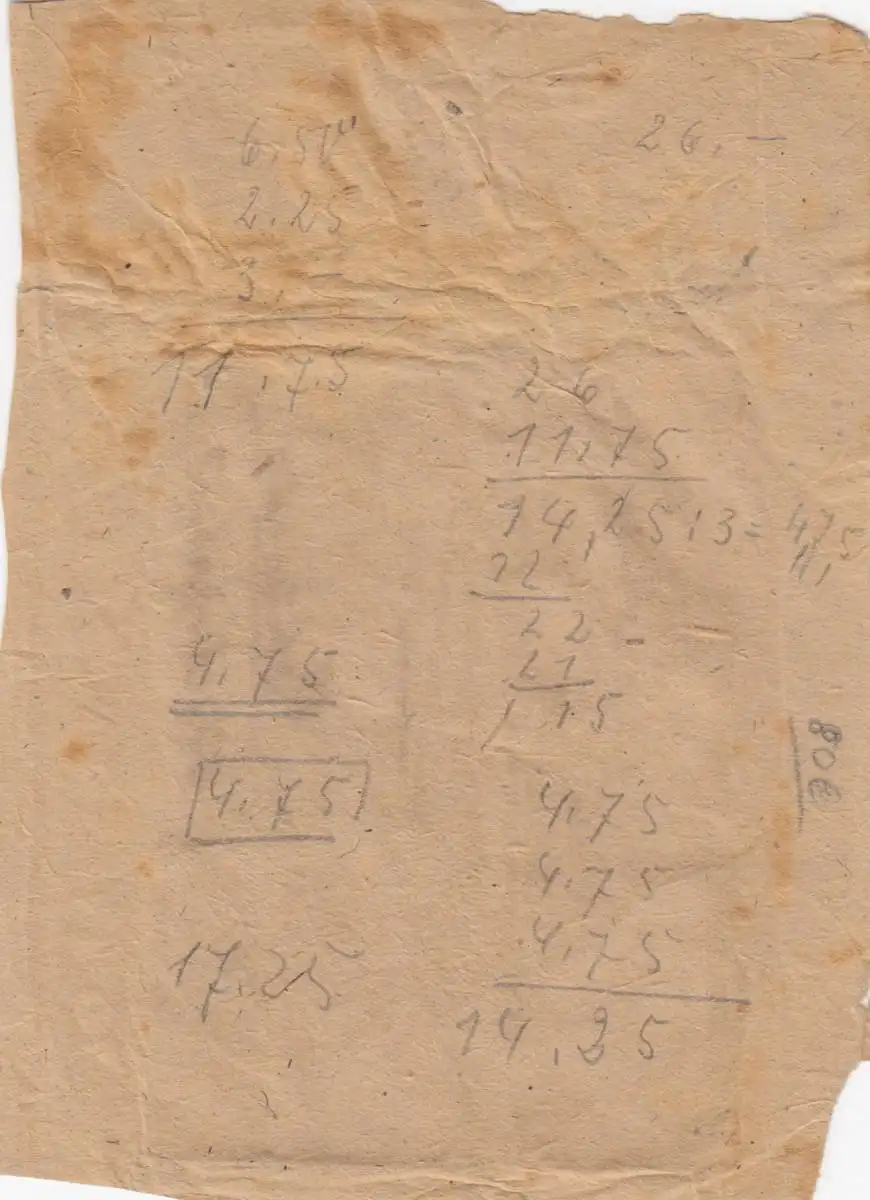 6.50
2.25
3.–
11.75
26.–
26
11.75
14,25:3=4,75
12
22
21
15
4.75
4.75
4.75
4.75
4.75
14.25
17.25
80€